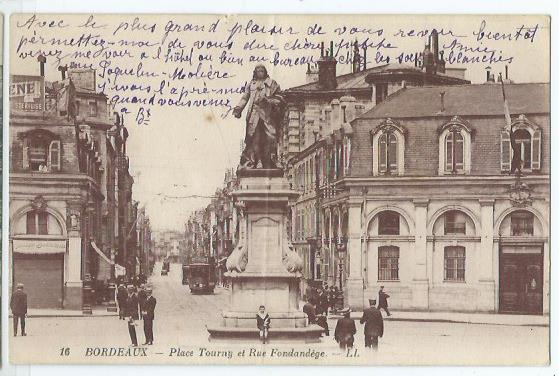 Avec le plus grand plaisir de vous revoir bientôt
permettez-moi de vous dire chère petite Amie
venez me voir à l'hôtel ou bien au bureau chez les sours blanches
rue Poquelin-Molière
j'irais l'après-m
Quand vous venez
à Bx
ENE
16 BORDEAUX. - Place Tourny et Rue Fondaudège. - LL